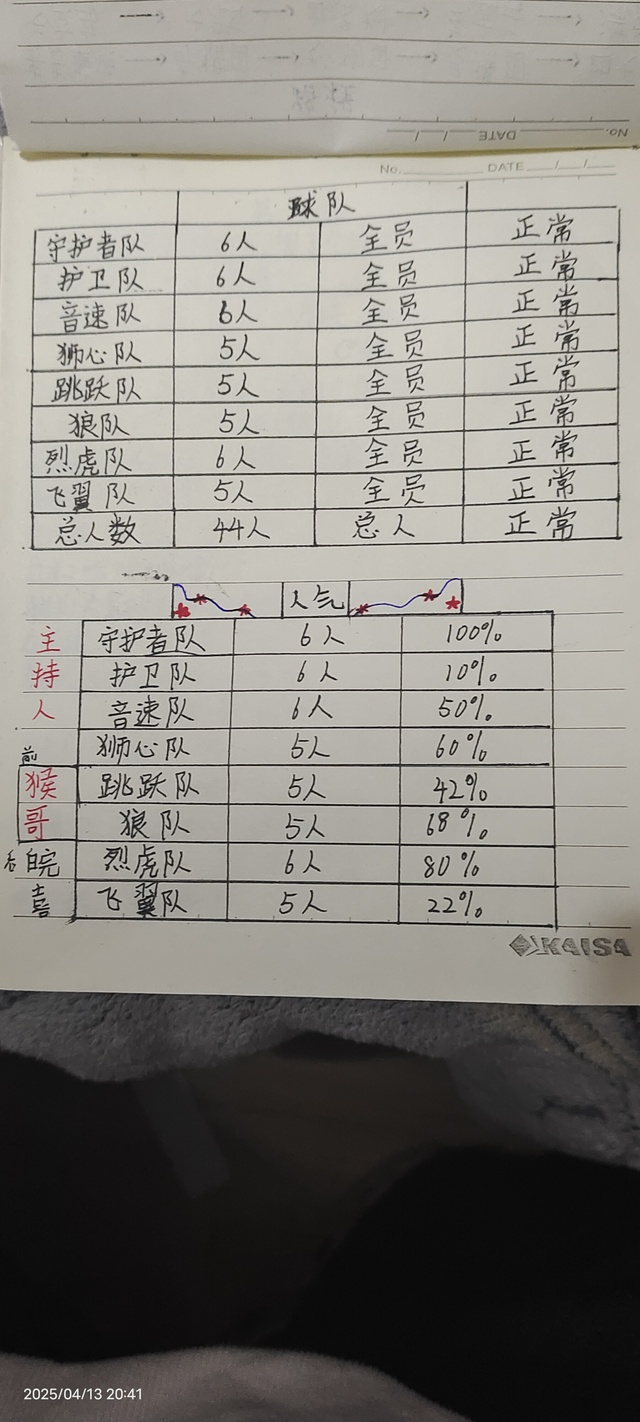 No. DATE / /
No. DATE / /
球队
守护者队 6人 全员 正常
护卫队 6人 全员 正常
音速队 6人 全员 正常
狮心队 5人 全员 正常
跳跃队 5人 全员 正常
狼队 5人 全员 正常
烈虎队 6人 全员 正常
飞翼队 5人 全员 正常
总人数 44人 总人 正常
人气
主 守护者队 6人 100%
持 护卫队 6人 10%
人 音速队 6人 50%
前 狮心队 5人 60%
猴 跳跃队 5人 42%
哥 狼队 5人 68%
皖 烈虎队 6人 80%
喜 飞翼队 5人 22%
KAISA
2025/04/13 20:41